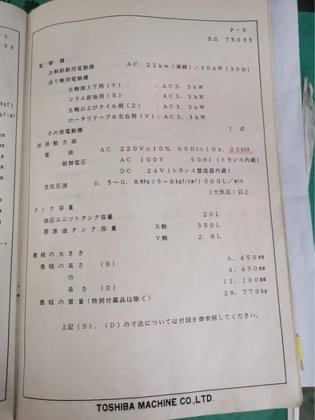 P-3
SS 75033
電動機
主軸駆動用電動機 AC 22kw(連続)/30kW(30分)
送り軸用電動機
主軸頭上下用(Y) : AC3.3kW
コラム前後用(X) : AC3.3kW
主軸およびクイル用(Z) : AC3.3kW
ロータリテーブル左右用(V) : AC3.3kW
その他電動機 1式
所要動力源
電源 AC 220V±10%, 60Hz±1Hz,
制御電圧 AC 100V 60Hz(トランス内蔵)
DC 24V(トランス整流器内蔵)
空気圧源 0.5~0.8MPa(5~8kgf/cm²)500L/min
(大気圧)以上
タンク容量
油圧ユニットタンク容量 20L
潤滑油タンク容量 X軸 350L
Y軸 2.8L
機械の大きさ
機械の高さ (B) 6,450mm
巾 4,450mm
長さ (D) 11,100mm
機械の質量(特別付属品は除く) 29,770kg
上記(B)、(D)の寸法については付図を御参照してください。
TOSHIBA MACHINE CO.,LTD.